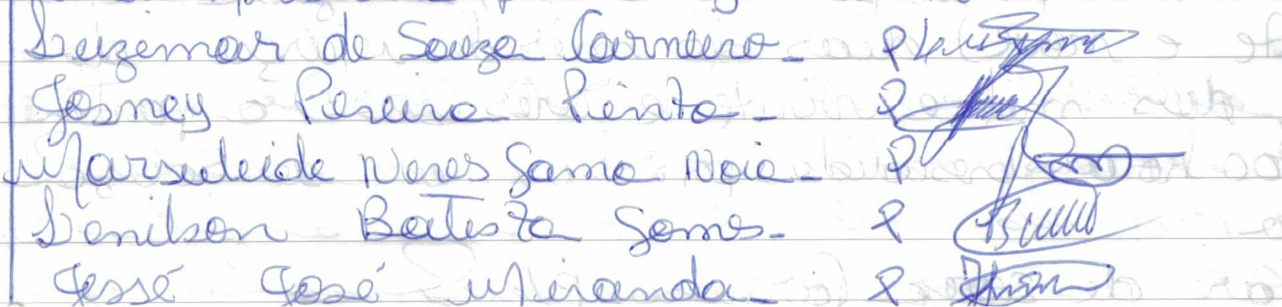 Luzemar de Souza Carneiro - P
Josney Pereira Pinto - P
Marsuleide Neres Gama Naia - P
Denilson Batista Gomes - P
Jessé José Miranda - P